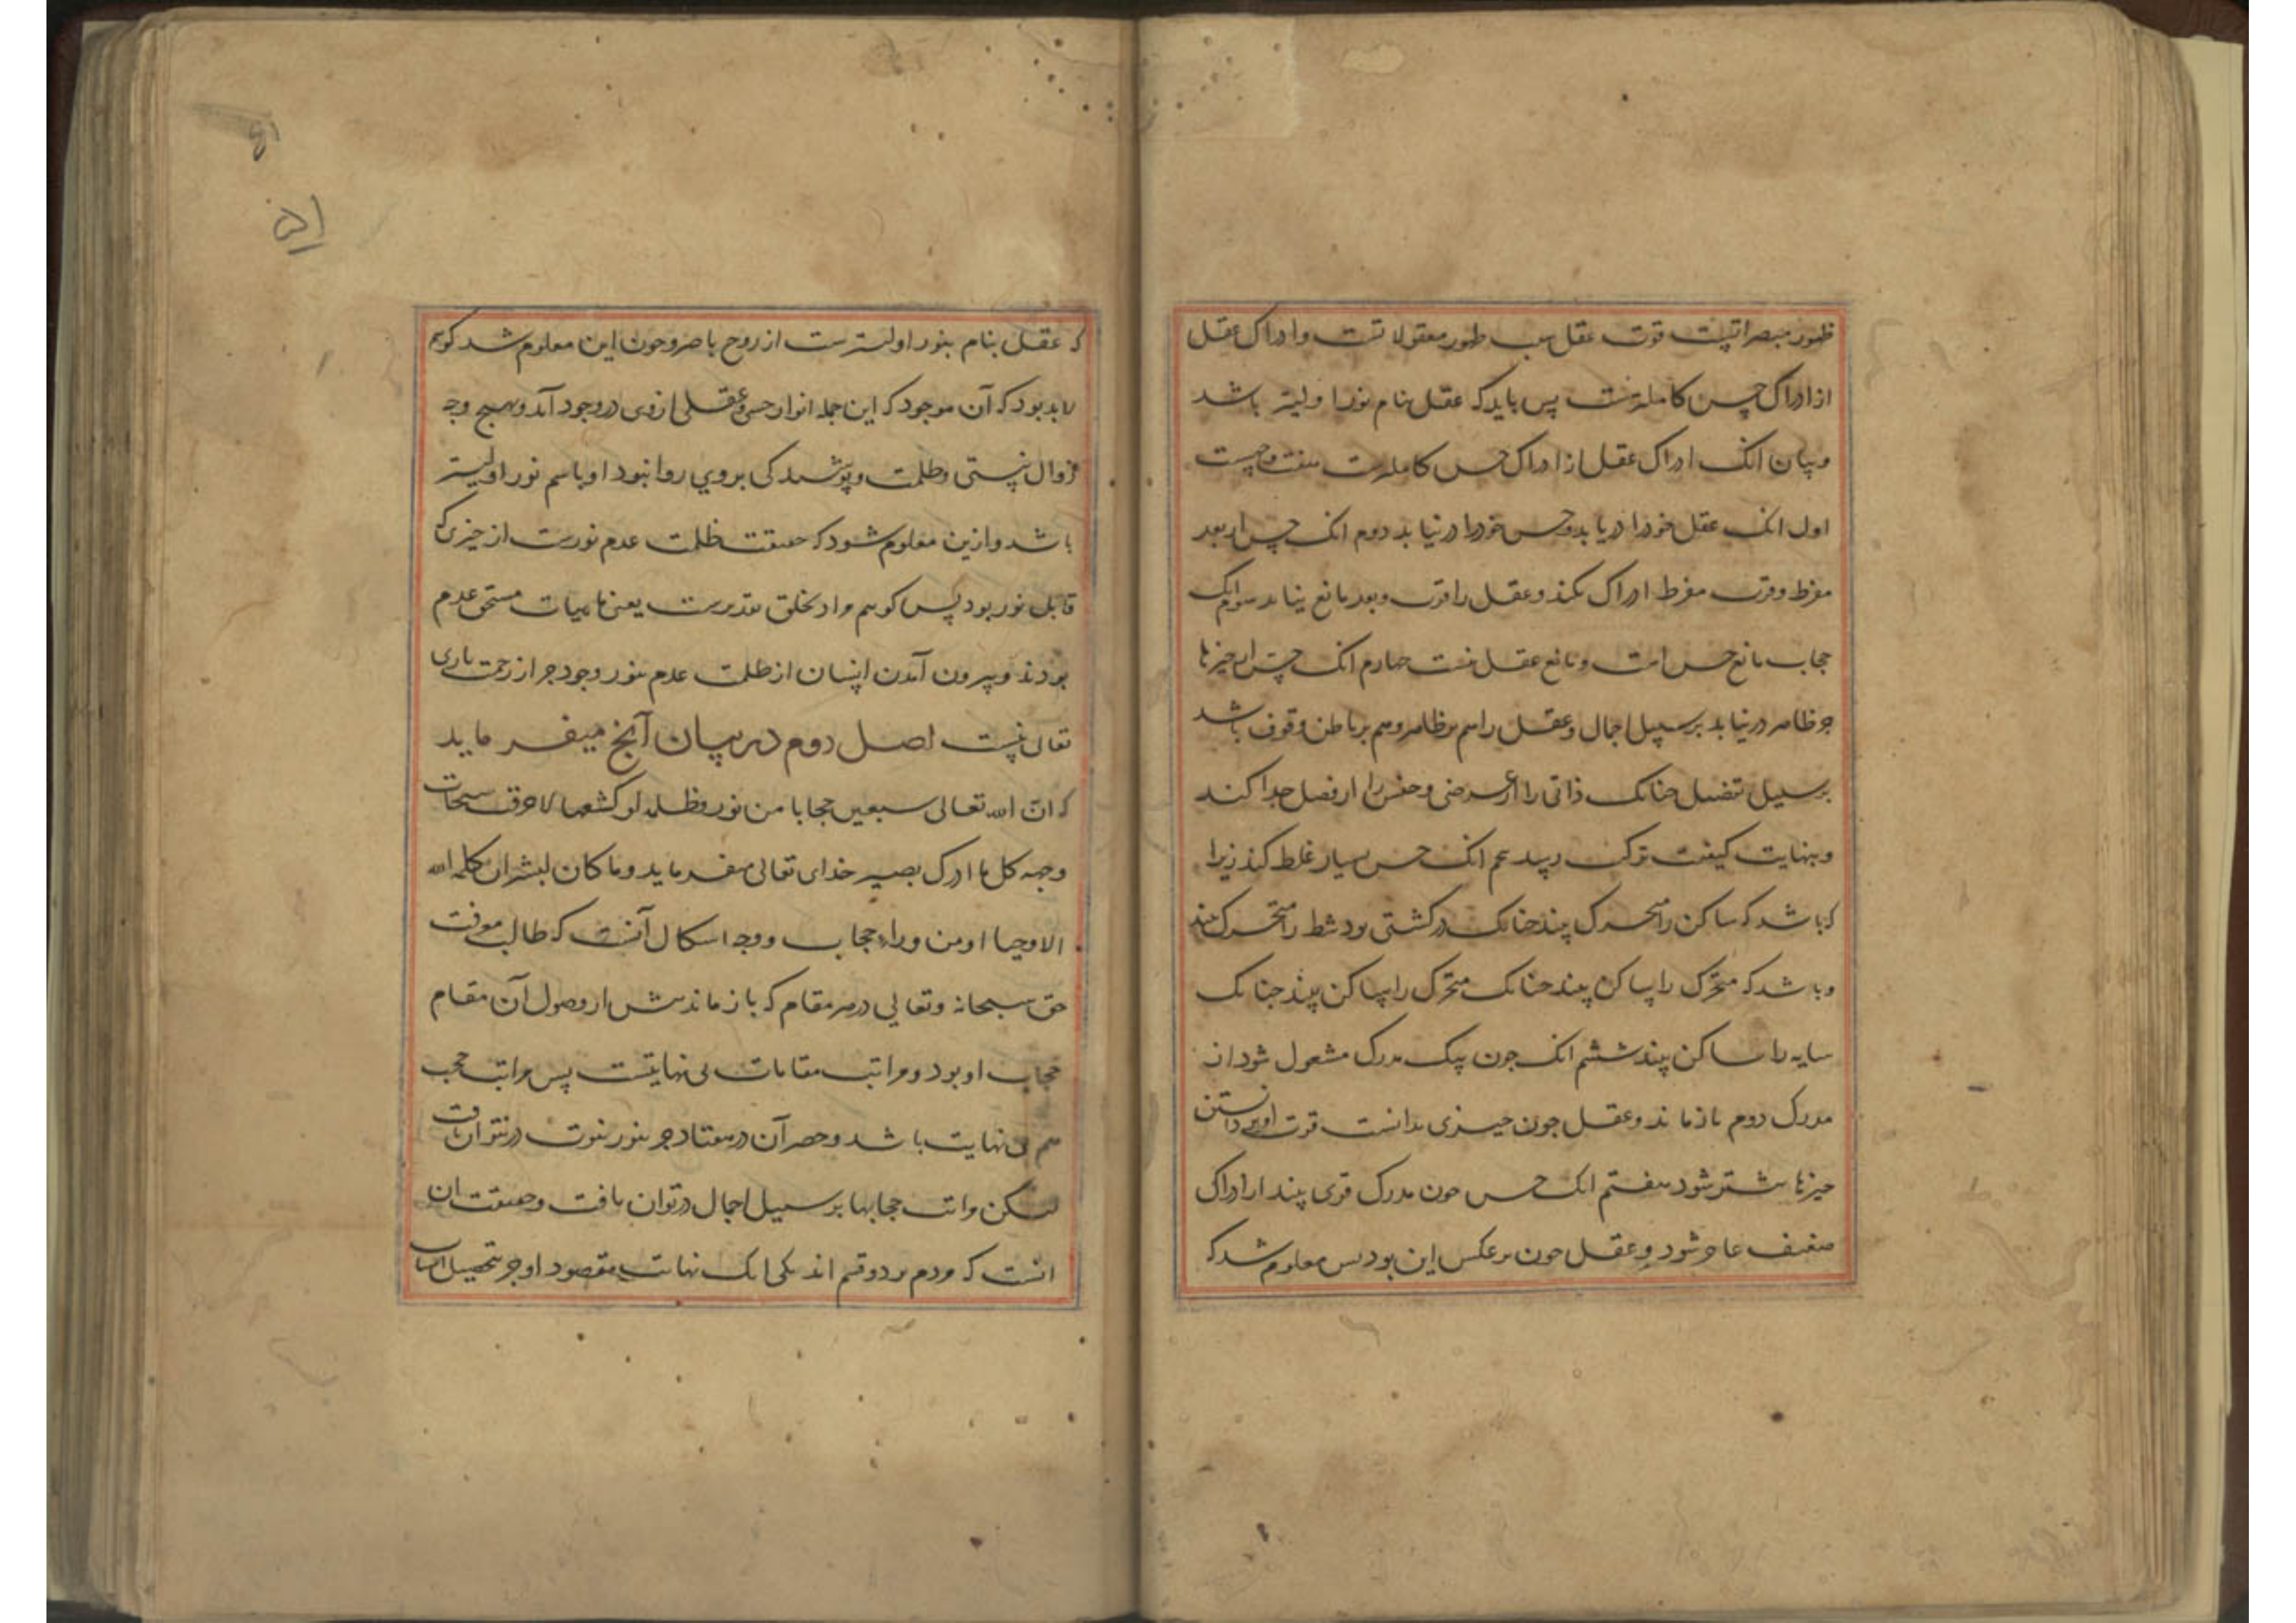 ظهور مبصراتیست قوت عقل سبب ظهور معقولاتست و ادراک عقل
از ادراک حس کاملترست پس باید که عقل بنام نور اولیتر باشد
و بیان انک ادراک عقل از ادراک حس کاملترست هفت وجهست
اول انک عقل خود را دریابد و حس خود را درنیابد دوم انک حس از بعد
مفرط و قرب مفرط ادراک نکند و عقل را قرب و بعد مانع نیاید سوم انک
حجاب مانع حس است و مانع عقل نیست چهارم انک حس از چیزها
جز ظاهر درنیابد بر سبیل اجمال و عقل را هم بر ظاهر و هم بر باطن وقوف باشد
بر سبیل تفصیل چنانک ذاتی را از عرضی و جنس را از فصل جدا کند
و بنهایت کیفیت ترکیب رسد پنجم انک حس بسیار غلط کند زیرا
که باشد که ساکن را متحرک بیند چنانک در کشتی بود شط را متحرک بیند
و باشد که متحرک را ساکن بیند چنانک متحرک را ساکن بیند چنانک
سایه را ساکن بیند ششم انک چون بیک مدرک مشغول شود از
مدرک دوم بازماند و عقل چون چیزی بدانست قوت او بر دانستن
چیزها بیشتر شود هفتم انک حس چون مدرک قوی بیند از ادراک
ضعیف عاجز شود و عقل چون بر عکس این بود پس معلوم شد که
که عقل بنام نور اولیترست از روح باصره و چون این معلوم شد گوییم
لابد بود که آن موجود که این جمله انوار حسی و عقلی از وی در وجود آمد و بهیچ وجه
زوال نیستی و ظلمت و پوشیدگی بر وی روا نبود او باسم نور اولیتر
باشد و ازین معلوم شود که حقیقت ظلمت عدم نورست از چیزی که
قابل نور بود پس گوییم مراد بخلق تقدیرست یعنی ماهیات مستحق عدم
بودند و بیرون آمدن ایشان از ظلمت عدم بنور وجود جز از رحمت باری
تعالی نیست اصل دوم در بیان آنچ میفرماید
که ان الله تعالی سبعین حجابا من نور و ظلمة لو کشفها لاحرقت سبحات
وجهه کل ما ادرک بصره خدای تعالی میفرماید و ما کان لبشر ان یکلمه الله
الا وحیا او من وراء حجاب و وجه اشکال آنست که طالب معرفت
حق سبحانه و تعالی در هر مقام که بازماندش از وصول آن مقام
حجاب او بود و مراتب مقامات بی نهایتست پس مراتب حجب
هم بی نهایت باشد و حصر آن در هفتاد جز بنور نبوت در نتوان یافت
لیکن مراتب حجابها بر سبیل اجمال در توان یافت و حقیقت ان
انست که مردم بر دو قسم اند یکی انک نهایت مقصود او جز تحصیل اسباب